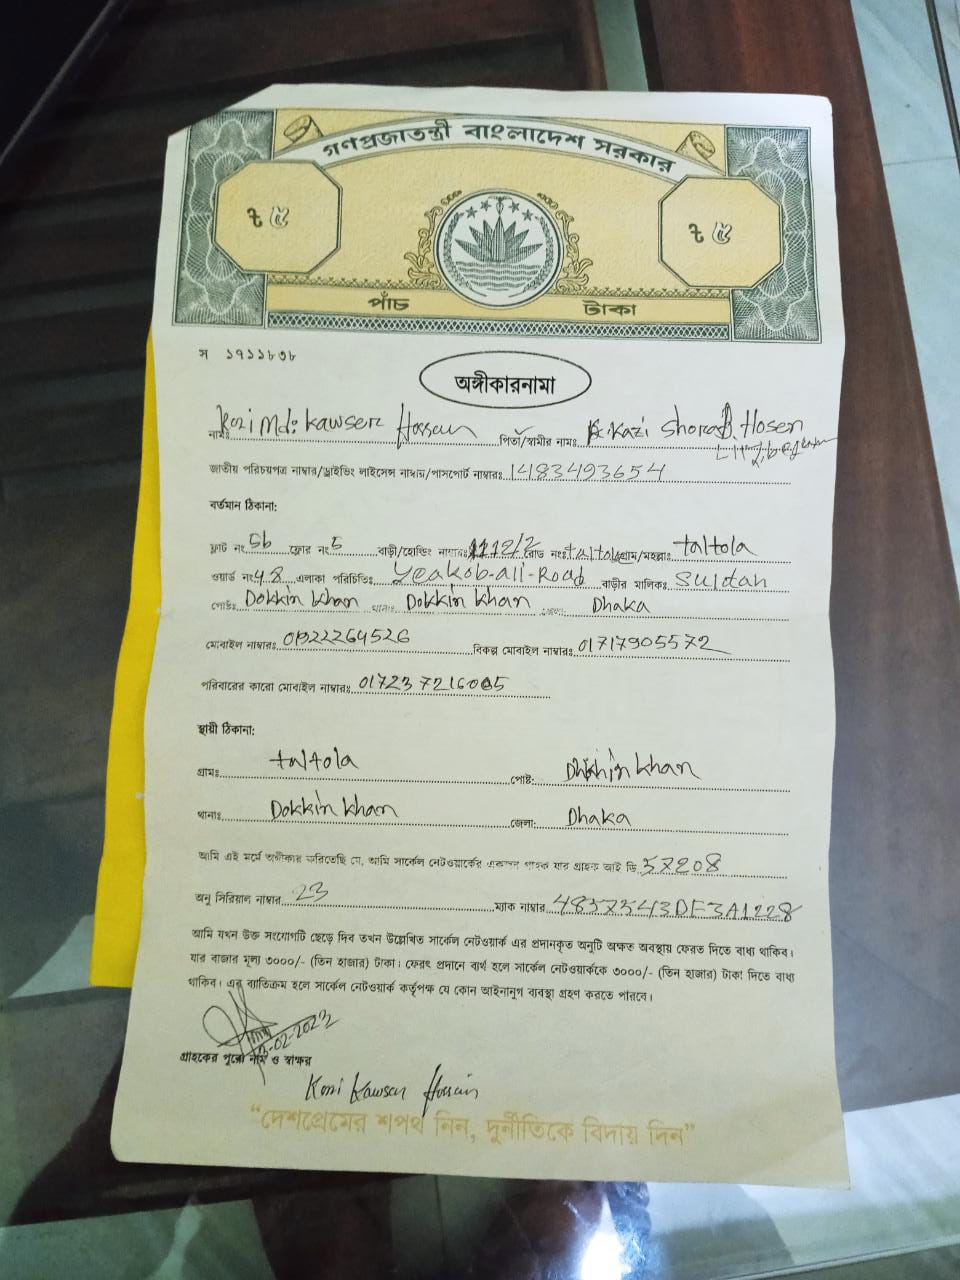 গণপ্রজাতন্ত্রী বাংলাদেশ সরকার
৳ ৫ ৳ ৫
পাঁচ টাকা
স ১৭১১৮৩৮
অঙ্গীকারনামা
নামঃ Kazi Md: Kawser Hossain পিতা/স্বামীর নামঃ Kazi Hosen
জাতীয় পরিচয়পত্র নাম্বার/ড্রাইভিং লাইসেন্স নাম্বার/পাসপোর্ট নাম্বারঃ 1483493654
বর্তমান ঠিকানা:
ফ্লাট নং 5b ফ্লোর নং 5 বাড়ী/হোল্ডিং নাম্বারঃ রোড নংঃ taltola গ্রাম/মহল্লাঃ taltola
ওয়ার্ড নং 48 এলাকা পরিচিতিঃ Yeakob-ali-Road বাড়ীর মালিকঃ Suldan
পোষ্টঃ Dokkin khan থানাঃ Dokkin khan জেলাঃ Dhaka
মোবাইল নাম্বারঃ 01922264526 বিকল্প মোবাইল নাম্বারঃ 01717905572
পরিবারের কারো মোবাইল নাম্বারঃ
স্থায়ী ঠিকানা:
গ্রামঃ taltola পোষ্ট: khan
থানাঃ Dokkin khan জেলা: Dhaka
আমি এই মর্মে অঙ্গীকার করিতেছি যে, আমি সার্কেল নেটওয়ার্কের একজন গ্রাহক যার গ্রাহক আই ডি 57208
অনু সিরিয়াল নাম্বার 23 ম্যাক নাম্বার 4857543DF3A1228
আমি যখন উক্ত সংযোগটি ছেড়ে দিব তখন উল্লেখিত সার্কেল নেটওয়ার্ক এর প্রদানকৃত অনুটি অক্ষত অবস্থায় ফেরত দিতে বাধ্য থাকিব।
যার বাজার মূল্য ৩০০০/- (তিন হাজার) টাকা। ফেরৎ প্রদানে ব্যর্থ হলে সার্কেল নেটওয়ার্ককে ৩০০০/- (তিন হাজার) টাকা দিতে বাধ্য
থাকিব। এর ব্যাতিক্রম হলে সার্কেল নেটওয়ার্ক কর্তৃপক্ষ যে কোন আইনানুগ ব্যবস্থা গ্রহণ করতে পারবে।
গ্রাহকের পুরো নাম ও স্বাক্ষর
Kazi Kawser Hossain
"দেশপ্রেমের শপথ নিন, দুর্নীতিকে বিদায় দিন"